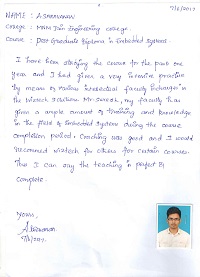 7/8/2017
NAME : A.SARAVANAN
College : MNM Jain Engineering college.
Course : Post Graduate Diploma in Embedded Systems
I have been studying the course for the past one
year and I had given a very intensive practice
by means of various intellectual faculty
the Wiztech Mr. my faculty has
given a ample amount of training and knowledge
in the field of Embedded Systems during the course
completion period. Coaching was good and I would
recommend Wiztech for others for certain courses.
Thus I can say the teaching is perfect &
Complete.
Yours,
A.Saravanan.
7/8/2017.